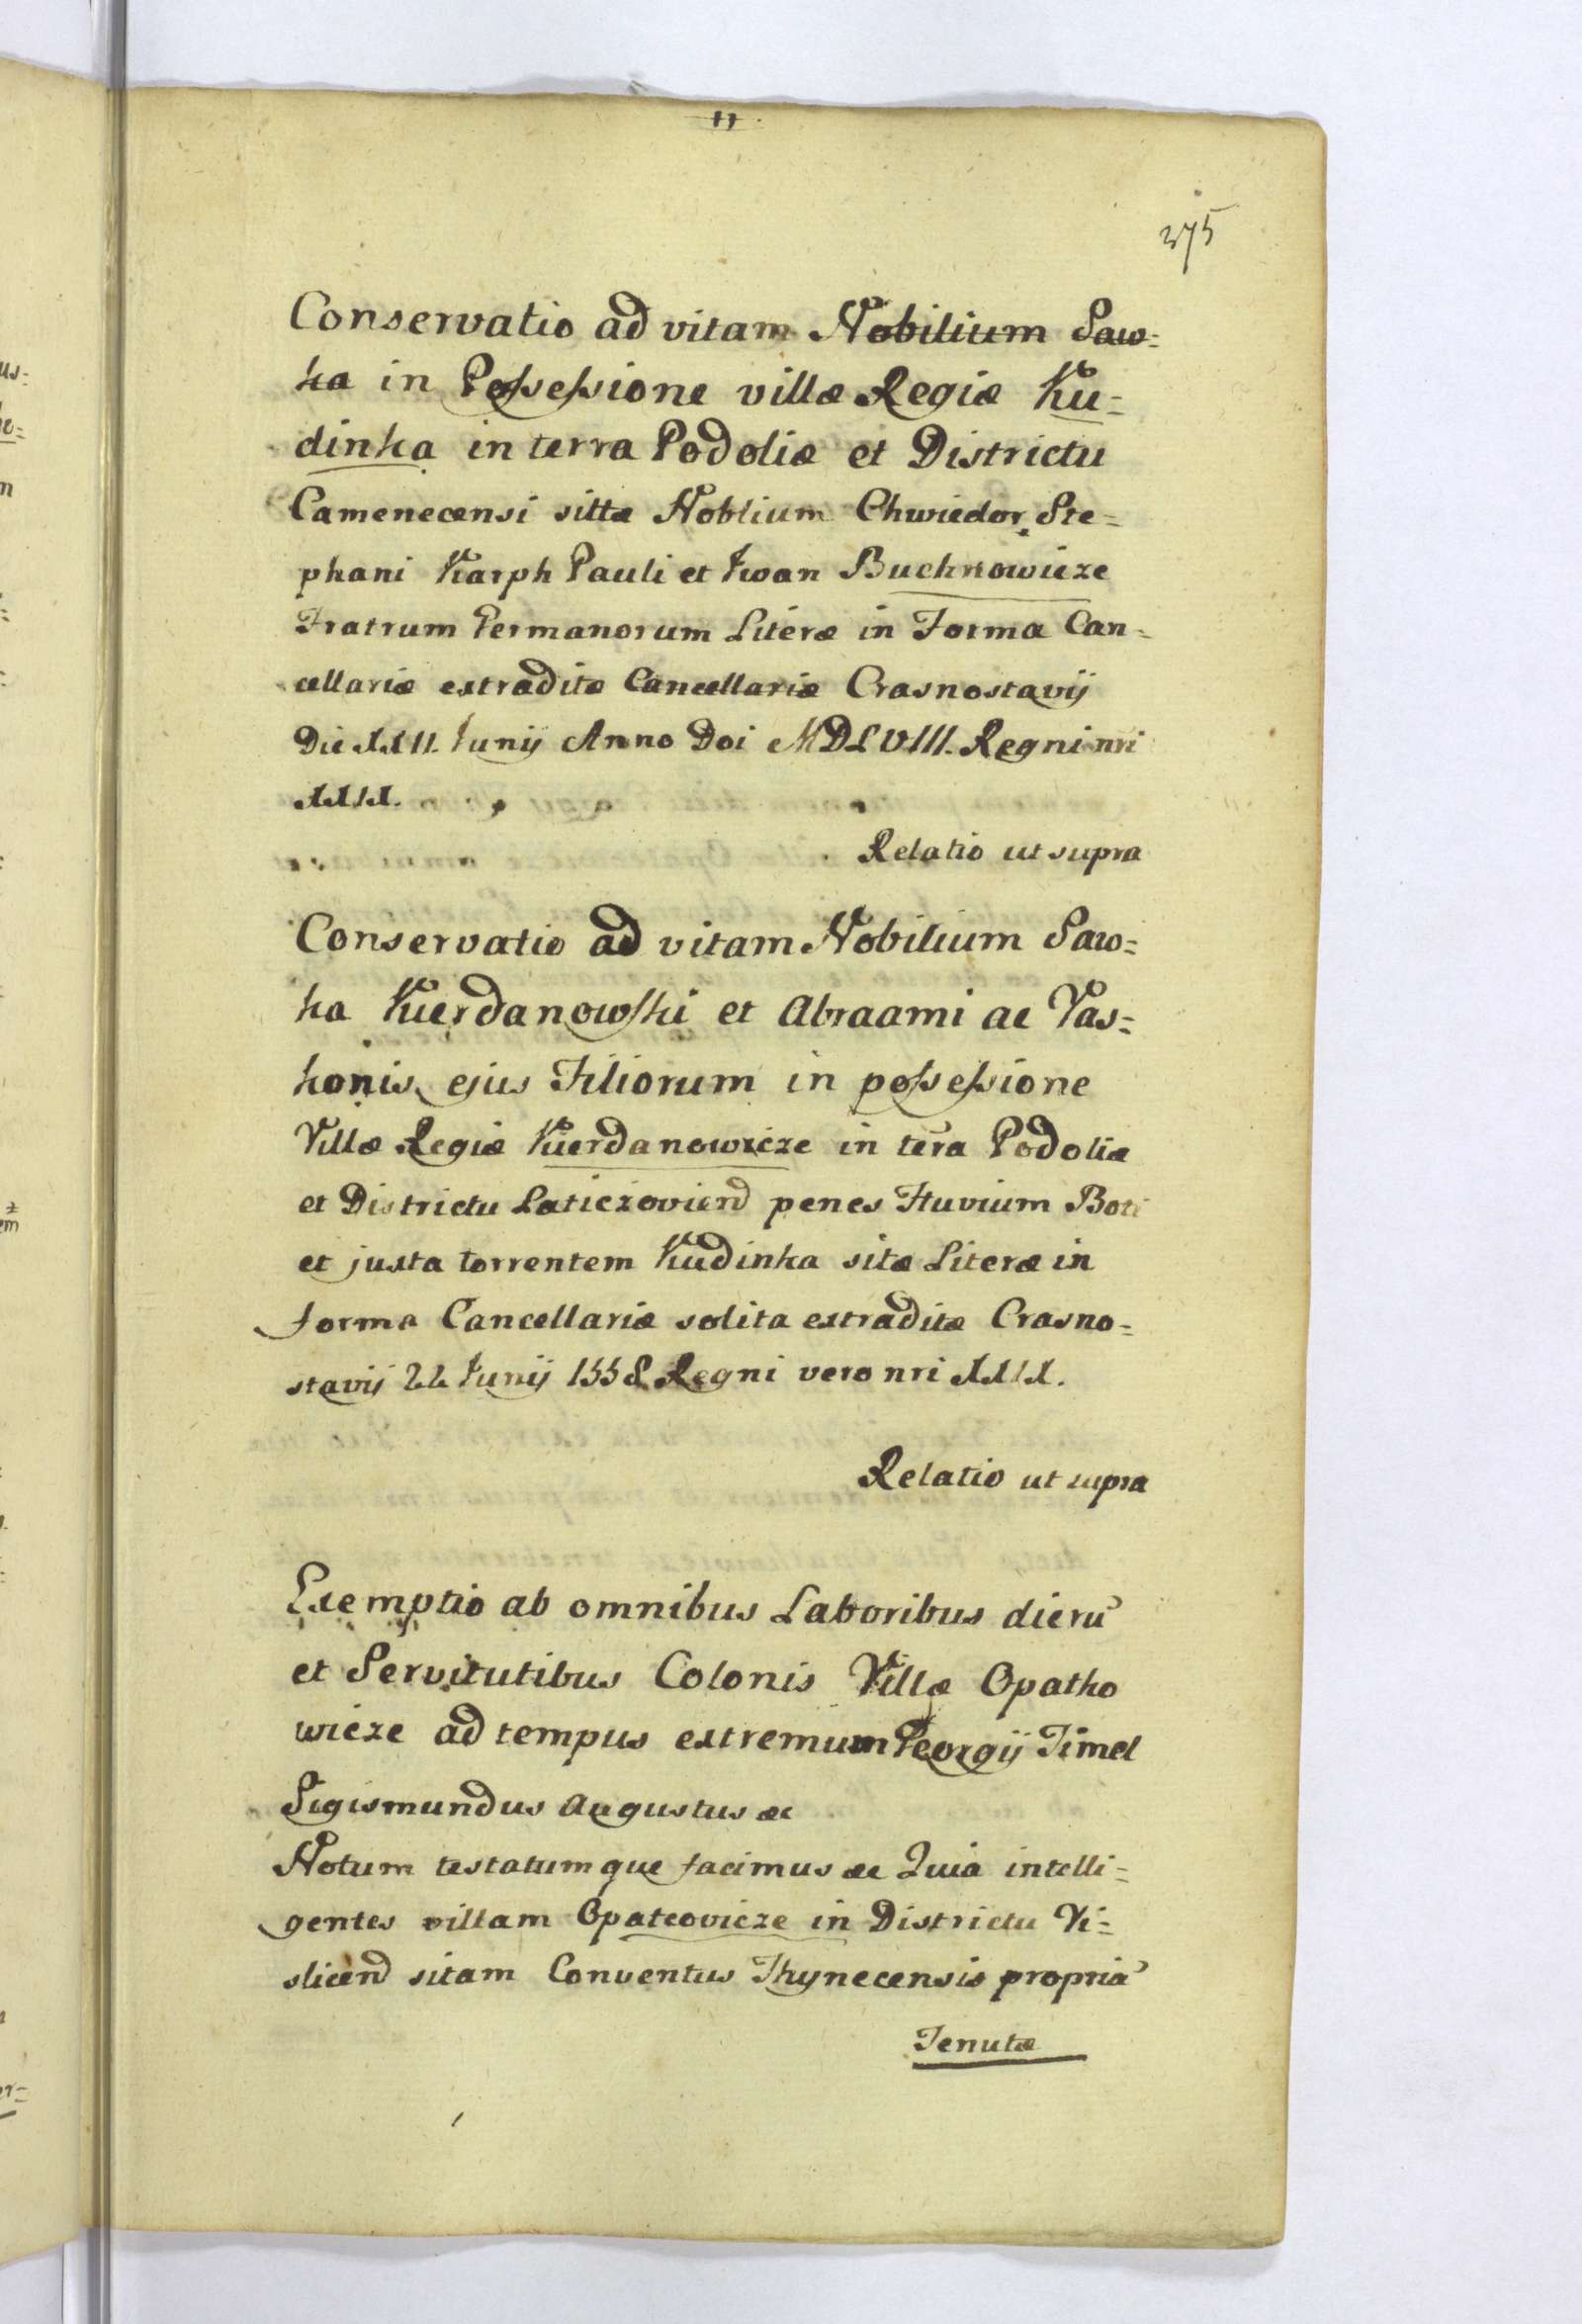 375
Conservatio ad vitam Nobilium Saw=
ka in Possessione villæ Regiæ Ku=
dinka in terra Podoliæ et Districtu
Camenecensi sittæ Noblium Chwiedor Ste=
phani Karph Pauli et Iwan Buchnowicze
Fratrum Germanorum Literæ in Forma Can=
cellariæ extraditæ Cancellariæ Crasnostavij
Die XXII. Iunij Anno Doi MDLVIII. Regni nri
XXIX.
Relatio ut supra
Conservatio ad vitam Nobilium Saw=
ka Kierdanowski et Abraami ac Vas=
konis ejus Filiorum in possessione
Villæ Regiæ Kierdanowicze in tera Podoliæ
et Districtu Laticzoviend penes Fluvium Boh
et juxta torrentem Kudinka sitæ Literæ in
forma Cancellariæ solita extraditæ Crasno=
stavij 22 Iunij 1558 Regni vero nri XXIX.
Relatio ut supra
Exemptio ab omnibus Laboribus dierū
et Servitutibus Colonis Villæ Opatho
wicze ad tempus extremum Georgij Timel
Sigismundus Augustus æc
Notum testatumque facimus æc Quia intelli=
gentes villam Opatcovicze in Districtu Vi=
slicend sitam Conventus Thynecensis propria
Tenutæ